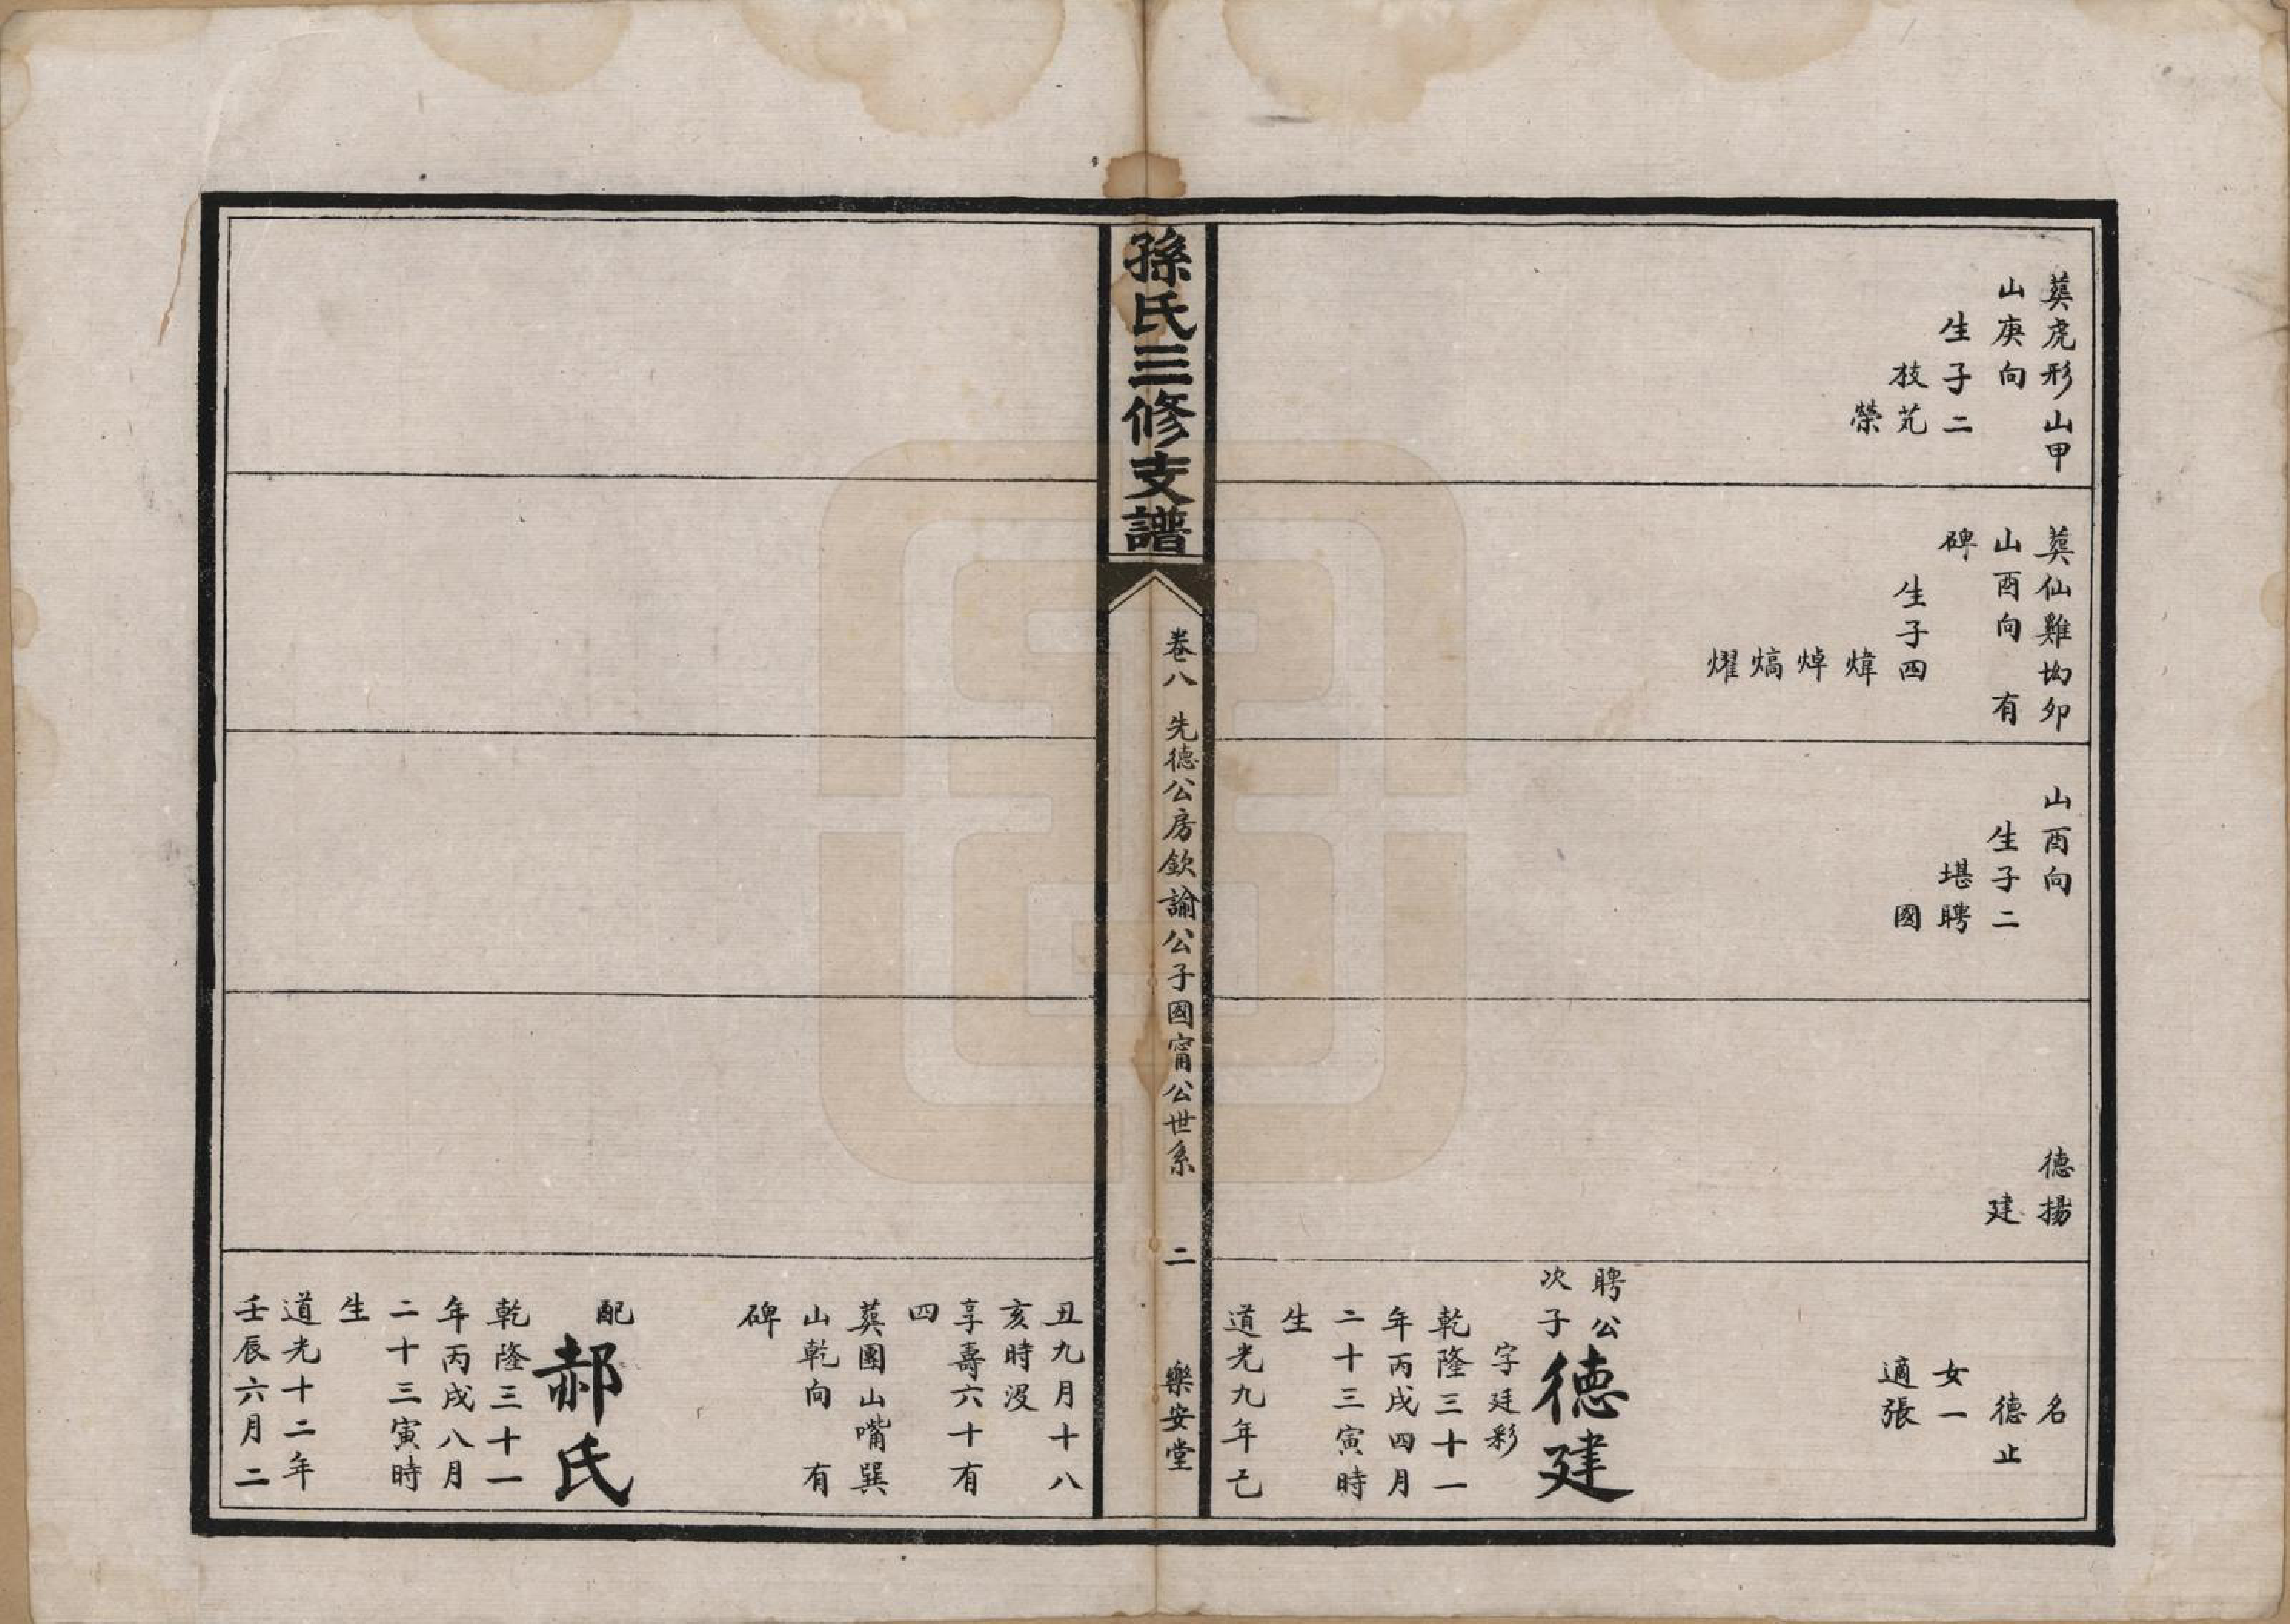 葬虎形山甲
山庚向
生子二
枝芃
榮
葬仙雞坳卯
山酉向 有
碑
生子四
煒
焯
熇
燿
山酉向
生子二
堪聘
國
德揚
建
名
德止
女一
適張
聘公
次子
德建
字廷彩
乾隆三十一
年丙戌四月
二十三寅時
生
道光九年己
孫氏三修支譜
卷八 先德公房欽諭公子國甯公世系
二
樂安堂
丑九月十八
亥時沒
享壽六十有
四
葬團山嘴巽
山乾向 有
碑
配
郝氏
乾隆三十一
年丙戌八月
二十三寅時
生
道光十二年
壬辰六月二